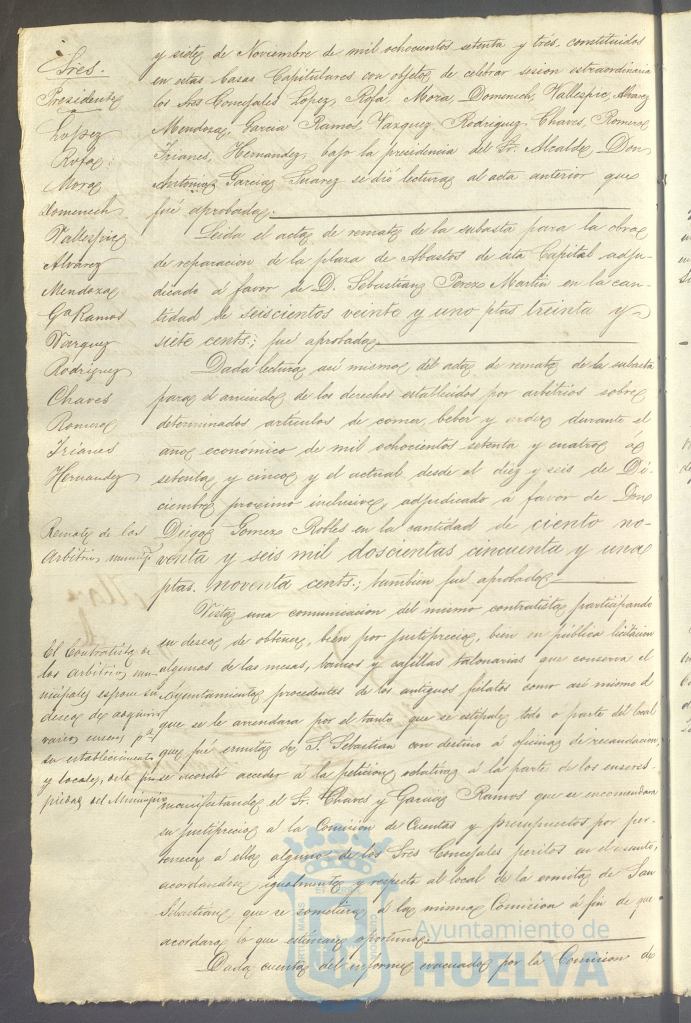 Sres.
Presidente
Lopez
Rofa
Mora
Domenech
Vallespin
Alvarez
Mendoza
Ga Ramos
Vazquez
Rodriguez
Chaves
Romero
Trianes
Hernandez
Remate de los
Arbitrios municip
El Contratista de
los Arbitrios mu-
nicipales espone su
deseo de adquirir
varios enseres pa
su establecimiento
y locales, de la pro-
piedad del Municipio
y siete de Noviembre de mil ochocientos setenta y tres, constituidos
en estas Casas Capitulares con objeto de celebrar sesion estraordinaria
los Sres Concejales Lopez, Rofa, Mora, Domenech, Vallespin, Alvarez
Mendoza, Garcia Ramos, Vazquez, Rodriguez, Chaves, Romero
Trianes, Hernandez, bajo la presidencia del Sr. Alcalde Don
Antonio Garcia Suarez se dió lectura al acta anterior que
fué aprobada.
Leida el acta de remate de la subasta para la obra
de reparacion de la plaza de Abastos de esta Capital adju-
dicado á favor de D. Sebastian Perez Martin en la can-
tidad de seiscientos veinte y uno ptas treinta y
siete cents; fué aprobada.
Dada lectura asi mismo del acta de remate de la subasta
para el arriendo de los derechos establecidos por arbitrios sobre
determinados articulos de comer, beber y arder durante el
año económico de mil ochocientos setenta y cuatro a
setenta y cinco y el actual desde el diez y seis de Di-
ciembre proximo inclusive, adjudicado á favor de Don
Diego Gomez Robles en la cantidad de ciento no-
venta y seis mil doscientas cincuenta y una
ptas. noventa cents.; tambien fué aprobada.
Vista una comunicacion del mismo contratista participando
su deseo de obtener, bien por justiprecio, bien en pública licitacion
algunas de las mesas, bancos y cajillas talonarias que conserva el
Ayuntamiento procedentes de los antiguos fielatos como asi mismo el
que se le arrendara por el tanto que se estipule todo ó parte del local
que fué ermita de S. Sebastian con destino á oficina de recaudacion,
se acordó acceder á la peticion relativa á la parte de los enseres
manifestando el Sr. Chaves y Garcia Ramos que se encomendara
su justiprecio á la Comision de Cuentas y presupuestos por per-
tenecer á ella algunos de los Sres Concejales peritos en el asunto;
acordandose igualmente y respecto al local de la ermita de San
Sebastian que se sometiera á la misma Comision á fin de que
acordara lo que estimare oportuno.
Dada cuenta del informe evacuado por la Comision de
Ayuntamiento de
HUELVA